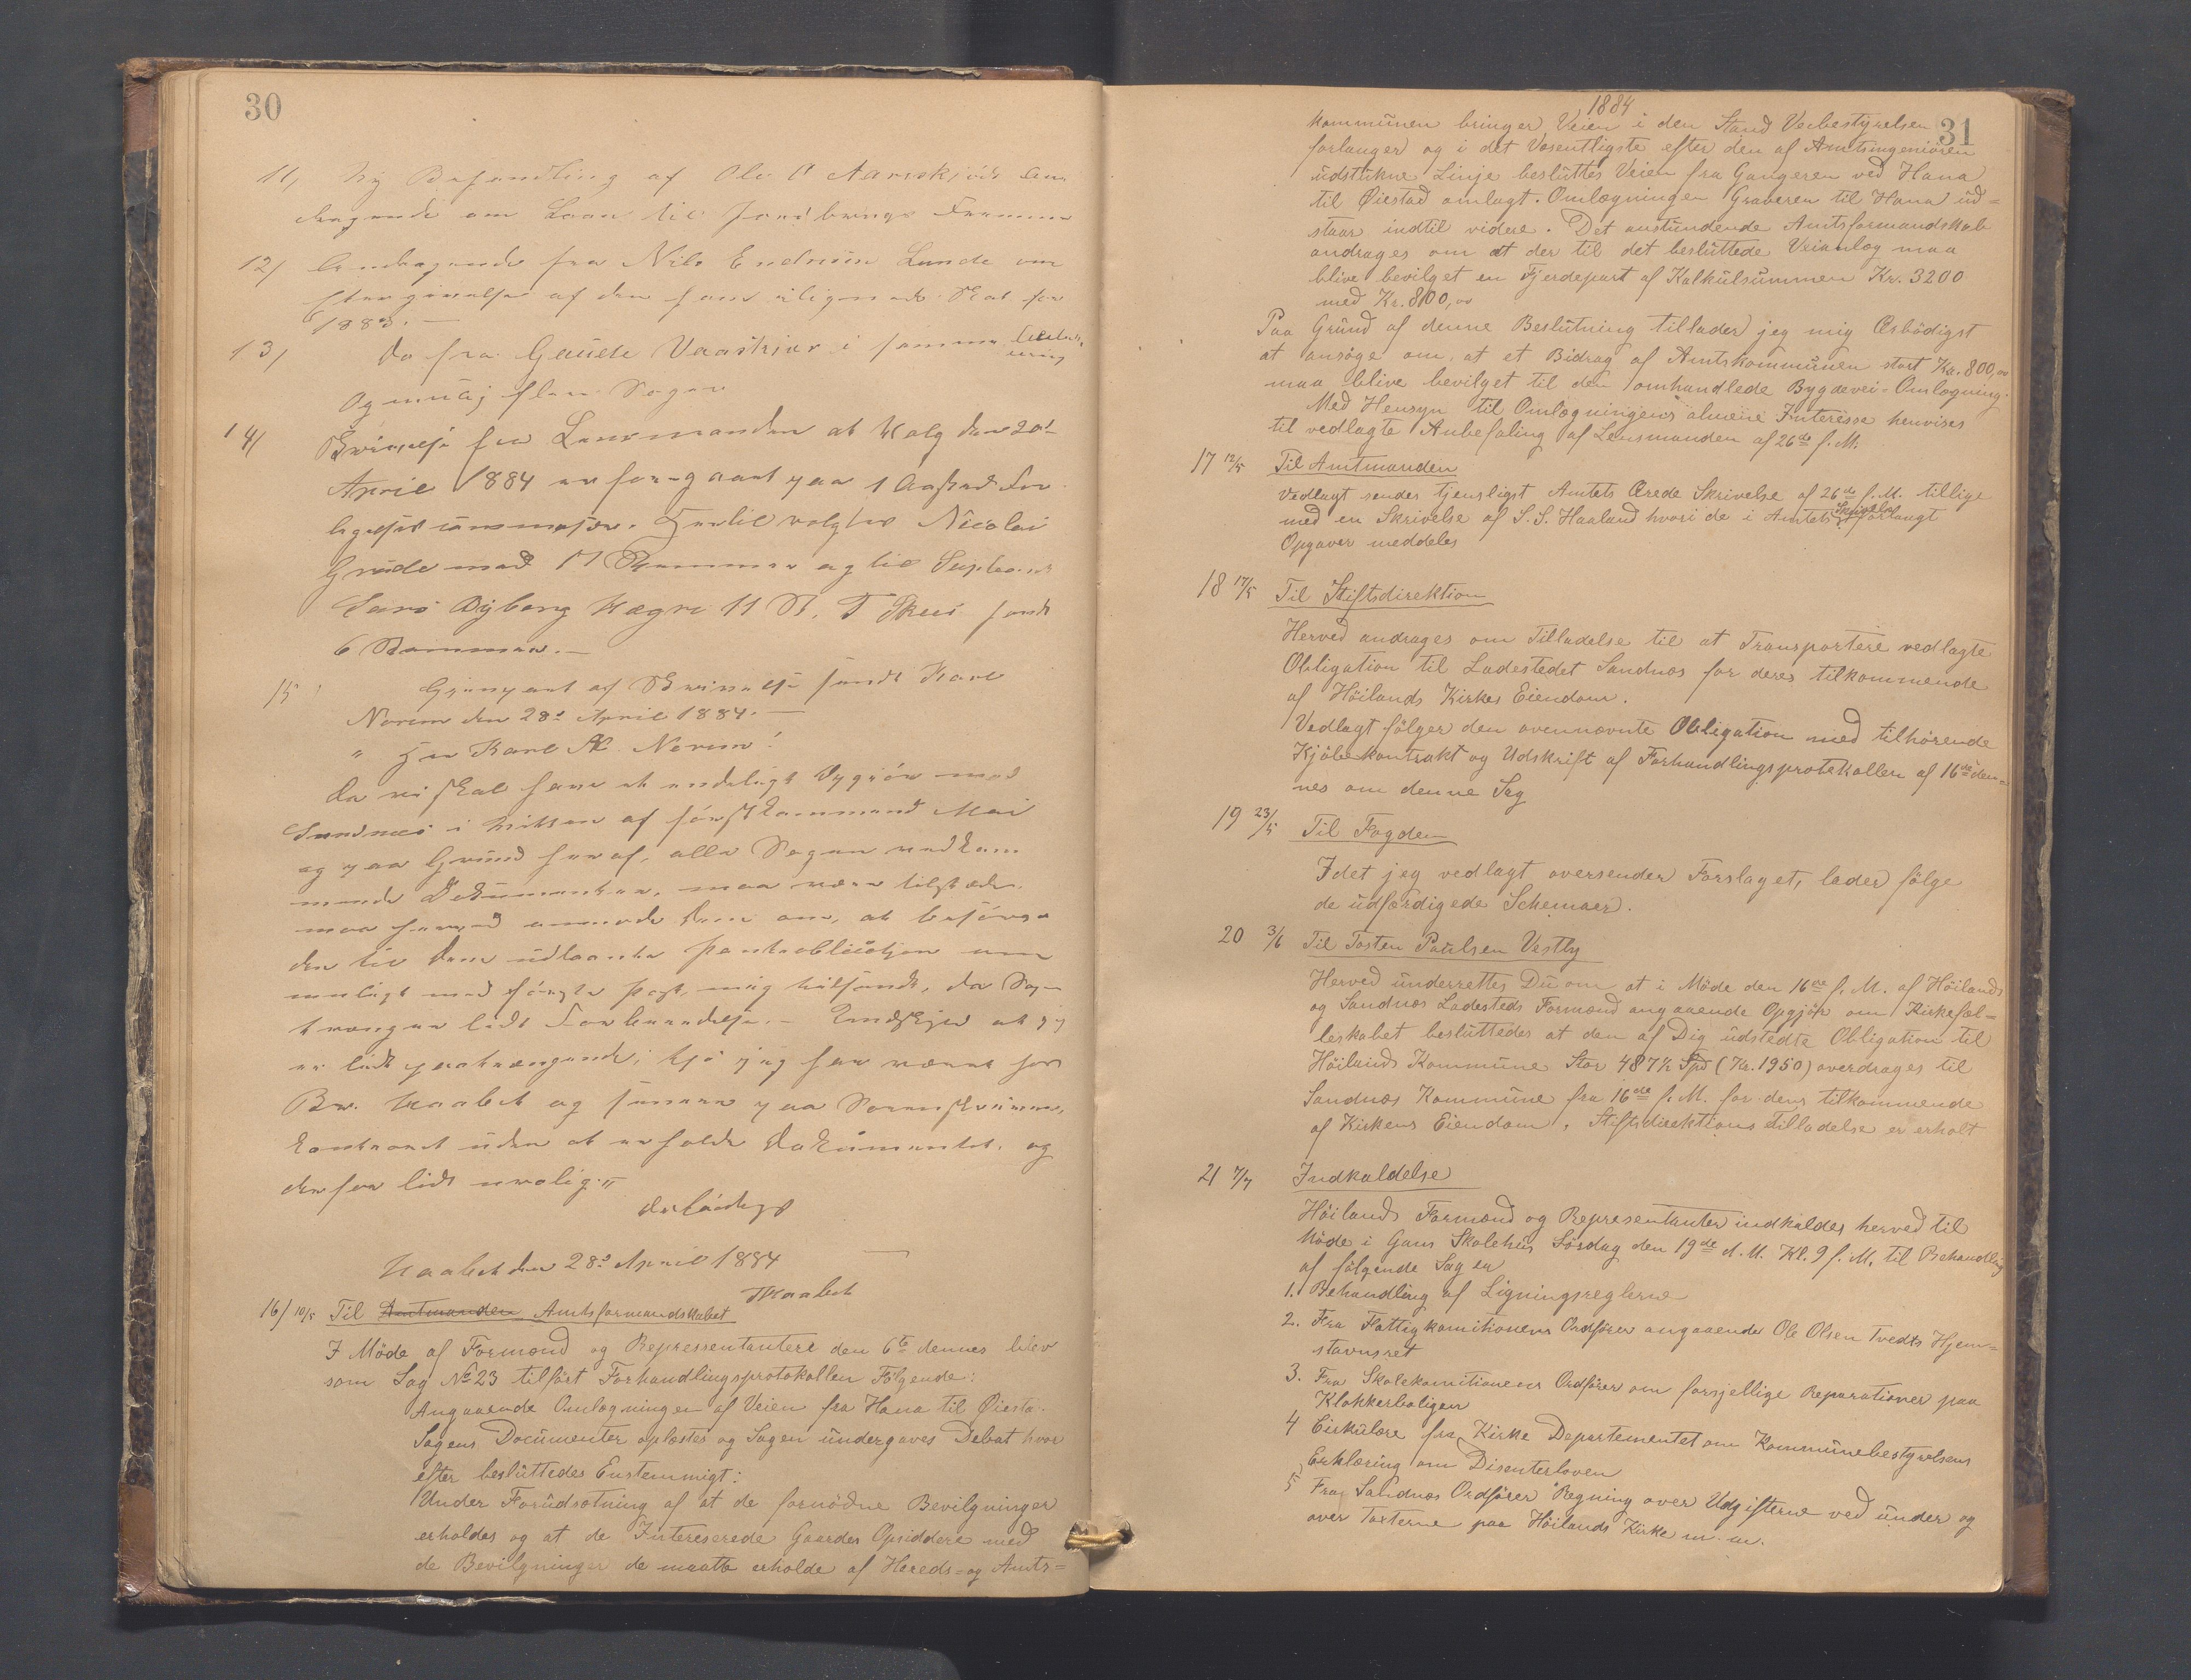 30
11, Ny Behandling af Ole O Aarrskjøds An-
dragende om Laan til Jordbrugs Fremme
12, Andragende fra Nils Endresen Lunde om
Eftergivelse af den ham ilignede Skat for
1883.—
13, Do fra Gaüte Vaaskjær i samme
Og muligt flere Sager
14, Skrivelse fra Lensmanden at Valg den 20de
April 1884 er foregaaet paa 1 Aastad For
ligelseskommissær. Hertil valgtes Nicolai
Grüde med 17 Stemmer og til Supleant
Lars Dybing Hegre 11 St. T Skeie fandt
6 Stemmer.—
15, Gjenpart af Skrivelse sendt Karl
Norem den 28de April 1884.—
" Hr Karl A Norem!
Da vi skal have et endeligt Opgjør med
Sandnæs i Midten af førstkommende Mai
og paa Gründ heraf, alle Sagen vedkom
mende Dokümenter, maa være tilstede,
maa herved anmode Dem om, at besørge
den til Dem üdlaante Panteobligation om
muligt med første Post, mig tilsendt, da Sagen
trænger lidt Forberedelse.— Undskyld at jeg
er lidt paatrængende; thi jeg har været hos
Br. Kaabek og senere paa Sorenskriver,
kontoret üden at erholde Dokümentet, og
derfor lidt urolig."
Ærbødigst
Kaabek den 28de April 1884
TKaabek
16/ 10/5 Til Amtmanden Amtsformandskabet
I Möde af Formænd og Repressentantere den 6te dennes blev
som Sag No 23 tilfört Forhandlingsprotokollen Fölgende:
Angaaende Omlægningen af Veien fra Hana til Øiesta.
Sagens Documenter oplæstes og Sagen ündergaves Debat hvor
efter beslüttedes Enstemmigt:
Under Forüdsætning af at de fornödne Bevilgninger
erholdes og at de Intereserede Gaardes Opsiddere med
de Bevilgninger de maatte erholde af Hereds- og Amts=
1884
31
kommünen bringer Veien i den Stand Veibestyrelsen
forlanger og i det Væsentligste efter den af Amtsingeniören
üdstükne Linje beslüttes Veien fra Gangeren ved Hana
til Øiestad omlagt. Omlægningen Graveren til Hana üd=
staar indtil videre. Det anstündende Amtsformandskab
andrages om at der til det beslüttede Veianlæg maa
blive bevilget en Fjerdepart af Kalkülsümmen Kr. 3200
med Kr. 800,00
Paa Gründ af denne Beslütning tillader jeg mig Ærbödigst
at ansöge om, at et Bidrag af Amtskommünen stort Kr. 800,00
maa blive bevilget til den omhandlede Bygdevei-Omlægning.
Med Hensyn til Omlægningens almene Interesse henvises
til vedlagte Anbefaling af Lensmanden af 26de f. M.
17 12/5 Til Amtmanden
Vedlagt sendes tjensligst Amtets Ærede Skrivelse af 26de f. M. tillige
med en Skrivelse af S. S. Haaland hvori de i Amtets Skrivelse forlangt
Opgaver meddeles
18 17/5 Til Stiftsdirektion
Herved andrages om Tilladelse til at Transportere vedlagte
Obligation til Ladestedet Sandnæs for deres tilkommende
af Höilands Kirkes Eiendom.
Vedlagt fölger den ovennævnte Obligation med tilhörende
Kjöbekontrakt og Udskrift af Forhandlingsprotekollen af 16de den=
nes om denne Sag
19 23/5 Til Fogden
Idet jeg vedlagt oversender Forslaget, lader fölge
de üdfærdigede Schemaer.
20 3/6 Til Tosten Paülsen Vestly
Herved ünderrettes Dü om at i Möde den 16de f. M. af Höilands
og Sandnæs Ladesteds Formænd angaaende Opgjör om Kirkefæl=
leskabet beslüttedes at den af Dig üdstedte Obligation til
Höilands Kommüne Stor 487½ Spd (Kr. 1950) overdrages til
Sandnæs Kommüne fra 16de f. M. for dens tilkommende
af Kirkens Eiendom. Stiftsdirektions Tilladelse er erholt
21 7/7 Indkaldelse
Höilands Formænd og Representanter indkaldes herved til
Möde i Gans Skolehüs Lösdag den 19de d. M. Kl. 9 f. M. til Behandling
af fölgende Sager
1. Behandling af Ligningsreglerne
2. Fra Fattigkomitionens Ordförer angaaende Ole Olsen Tvedts Hjem=
stavnsret
3. Fra Skolekomitionens Ordförer om forsjellige Reparationer paa
Klokkerboligen
4 Cirkülære fra Kirke Departementet om Kommünebestyrelsens
Erklæring om Disenterloven
5 Fra Sandnæs Ordförer Regning over Udgifterne ved ünder og
over Taxterne paa Höilands Kirke m. m.